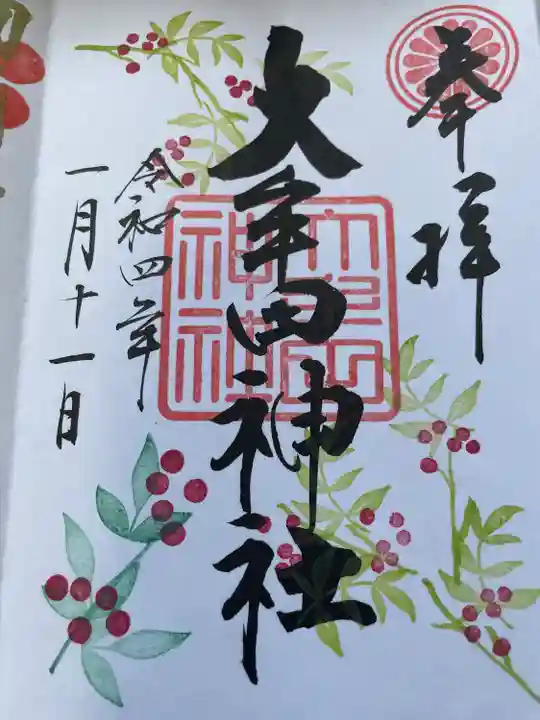 奉拝
大牟田神社
大牟田
神社
令和四年
一月十一日